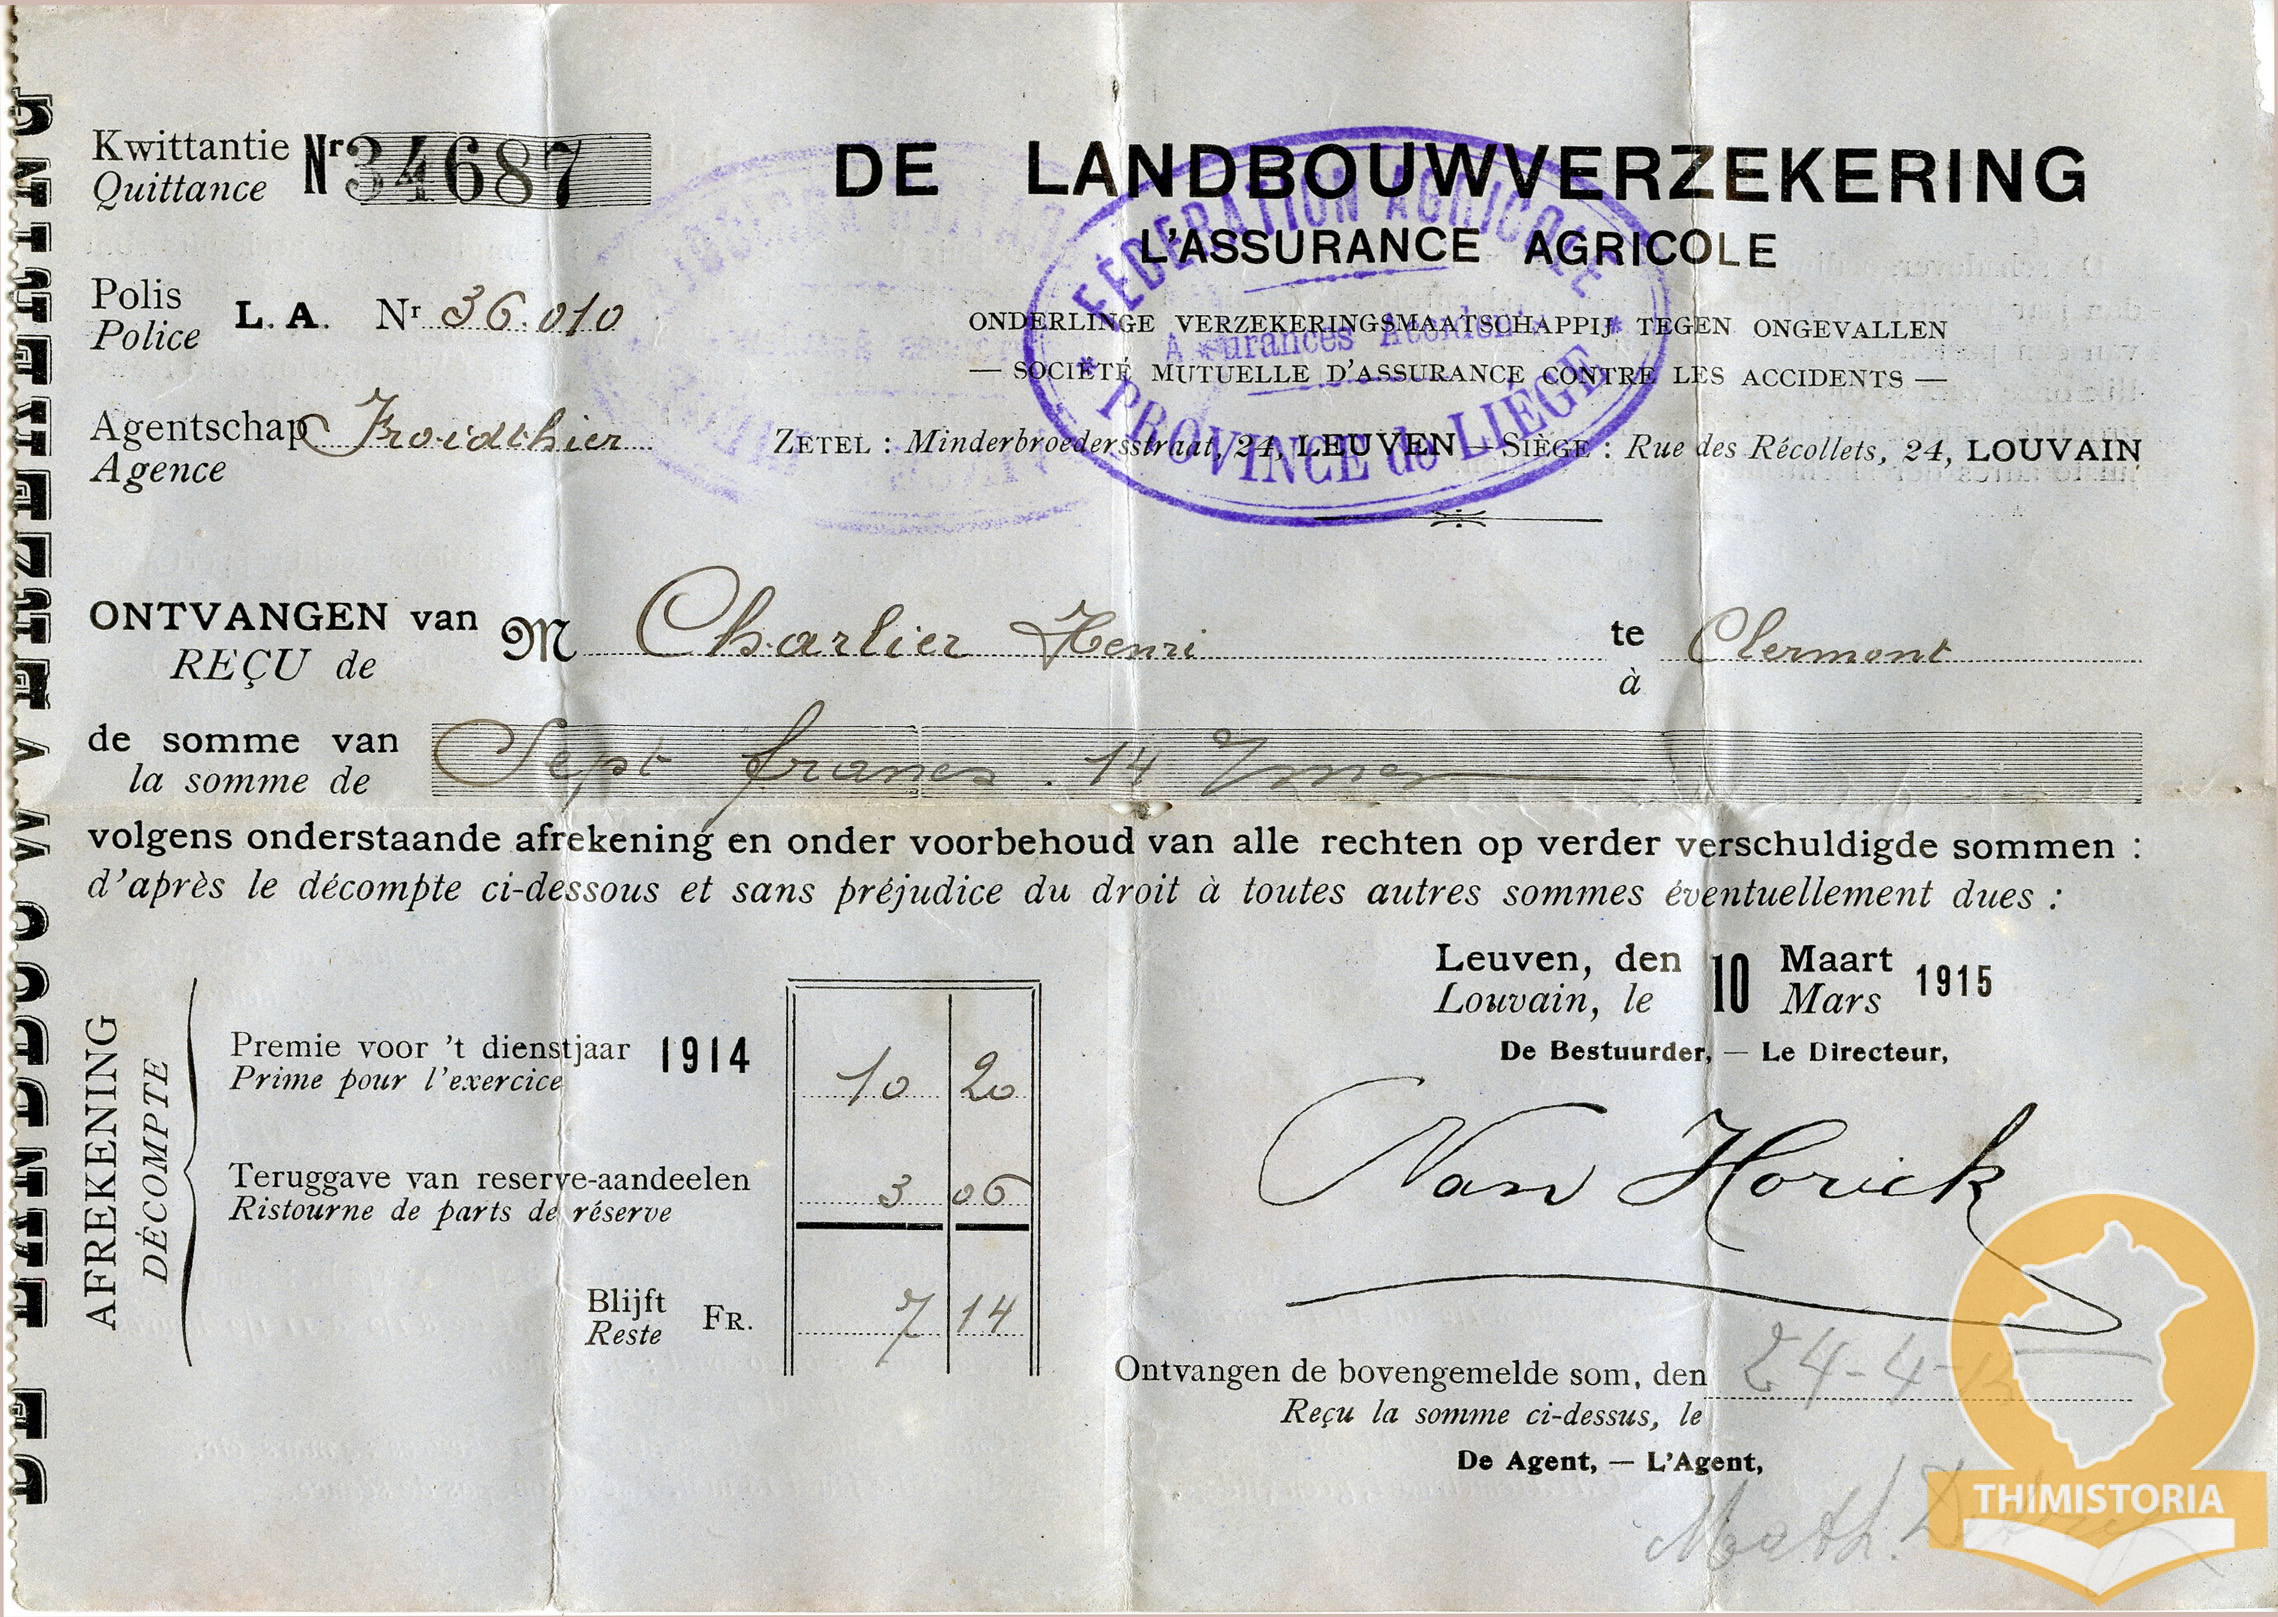 Kwittantie
Quittance
Nr 34687
DE LANDBOUWVERZEKERING
L'ASSURANCE AGRICOLE
Polis
Police
L. A. Nr 36.010
ONDERLINGE VERZEKERINGSMAATSCHAPPIJ TEGEN ONGEVALLEN
— SOCIÉTÉ MUTUELLE D'ASSURANCE CONTRE LES ACCIDENTS —
FÉDÉRATION AGRICOLE
Assurances Accidents
* PROVINCE de LIÉGE *
Agentschap Froidthier
Agence
ZETEL : Minderbroedersstraat, 24, LEUVEN — SIÈGE : Rue des Récollets, 24, LOUVAIN
ONTVANGEN van M Charlier Henri te Clermont
REÇU de à
de somme van Sept francs 14
la somme de
volgens onderstaande afrekening en onder voorbehoud van alle rechten op verder verschuldigde sommen :
d'après le décompte ci-dessous et sans préjudice du droit à toutes autres sommes éventuellement dues :
Leuven, den 10 Maart 1915
Louvain, le Mars
De Bestuurder, — Le Directeur,
Van Horick
AFREKENING
DÉCOMPTE
Premie voor 't dienstjaar 1914 10 20
Prime pour l'exercice
Teruggave van reserve-aandeelen 3 06
Ristourne de parts de réserve
Blijft FR. 7 14
Reste
Ontvangen de bovengemelde som, den 24-4-
Reçu la somme ci-dessus, le
De Agent, — L'Agent,
Math.
THIMISTORIA